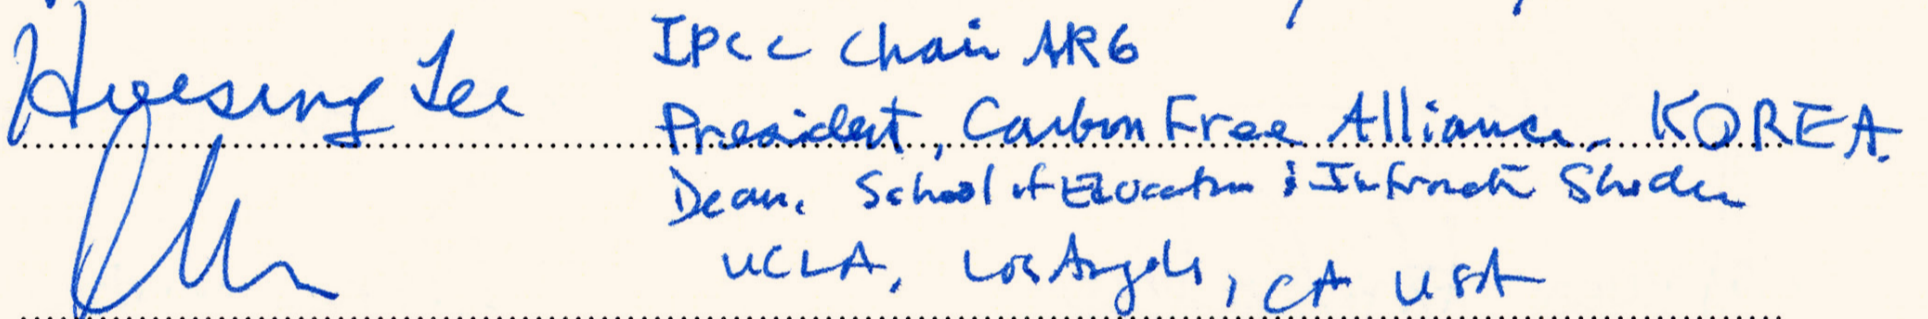 Hoesung Lee
IPCC Chair AR6
President, Carbon Free Alliance, KOREA.
Dean, School of Education & Information Studies
UCLA, Los Angeles, CA USA